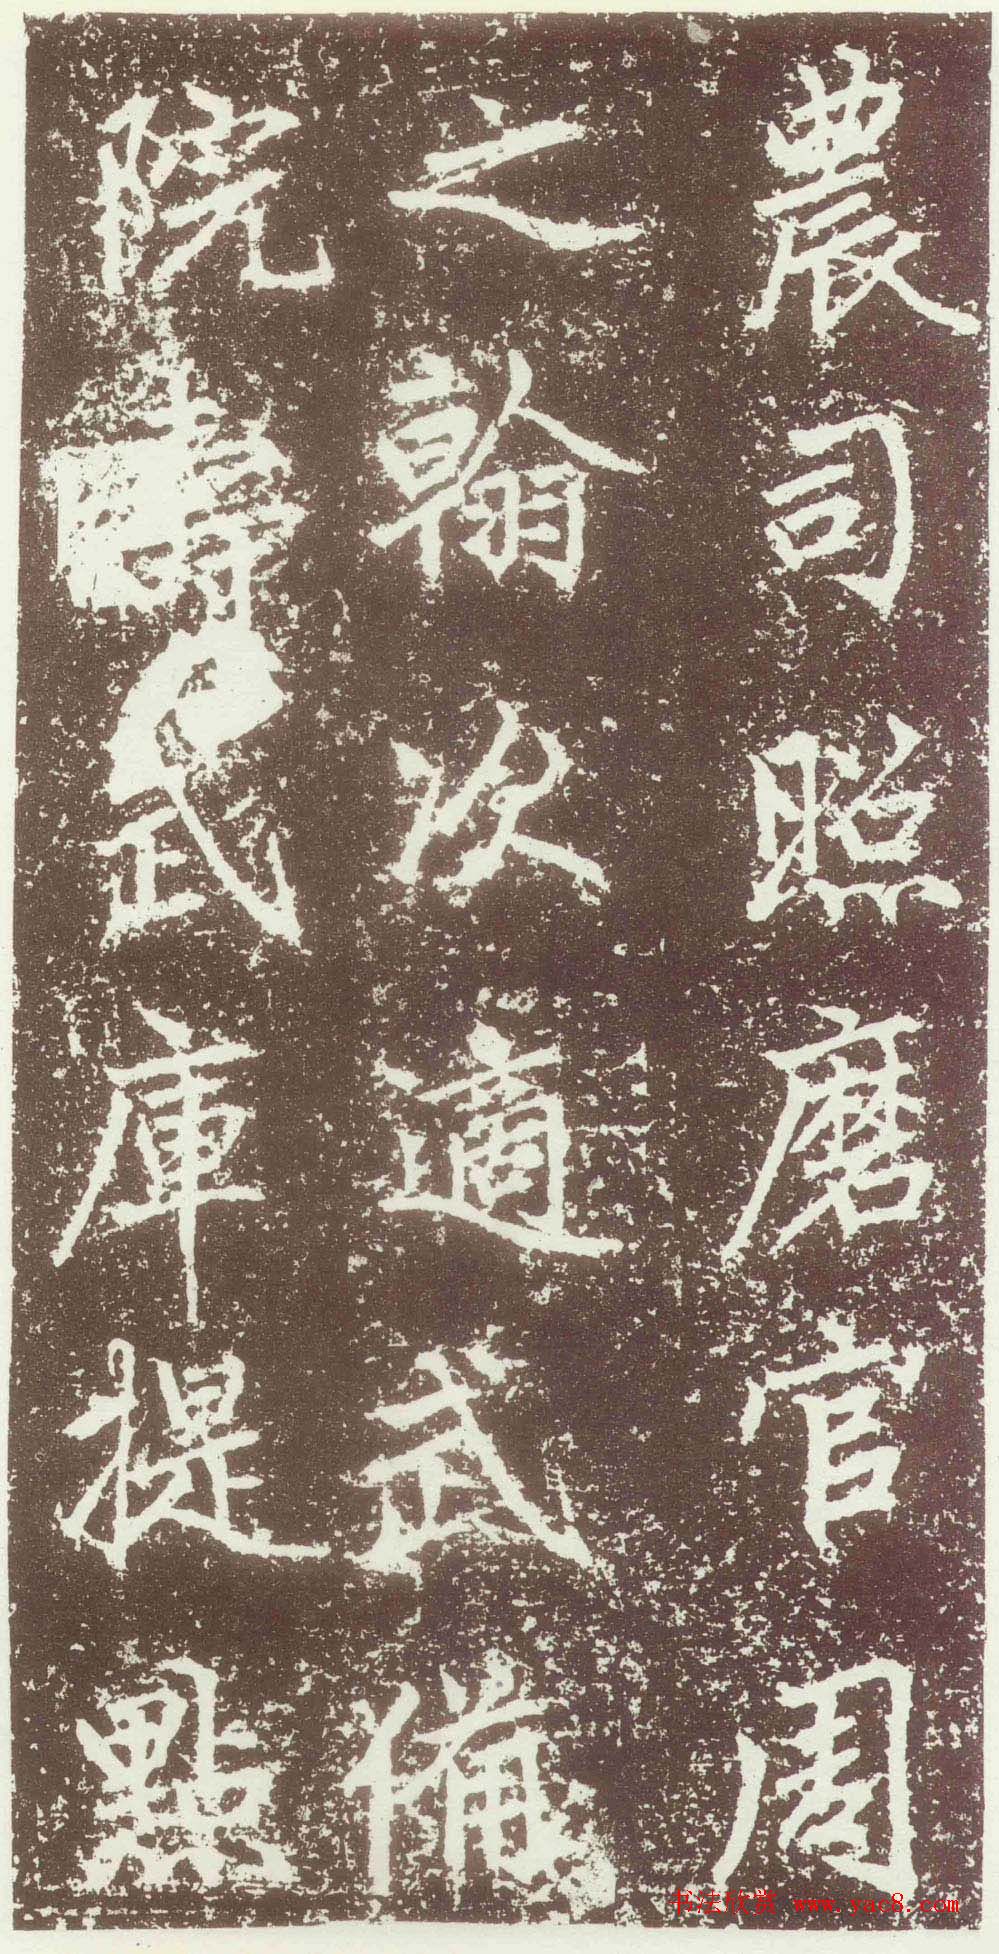 農司照磨官周
之翰次適武備
院壽武庫提
點
书法欣赏 www.yac8.com